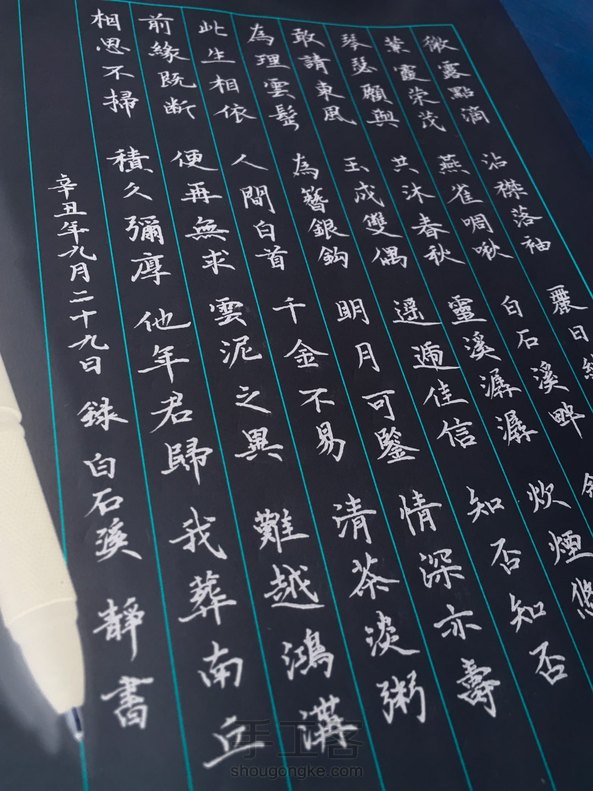 微露點滴 沾襟落袖 麗日
黃靈榮茂 燕雀啁啾 白石溪畔
琴瑟願與 共沐春秋 靈溪潺潺 炊煙悠
敢請東風 玉成雙偶 遥遞佳信 知否知否
為理雲髻 為簪銀鈎 明月可鑒 情深亦壽
此生相依 人間白首 千金不易 清茶淡粥
前緣既斷 便再無求 雲泥之異 難越鴻溝
相思不掃 積久彌厚 他年君歸 我葬南丘
辛丑年九月二十九日 録 白石溪 靜書
手工客
shougongke.com